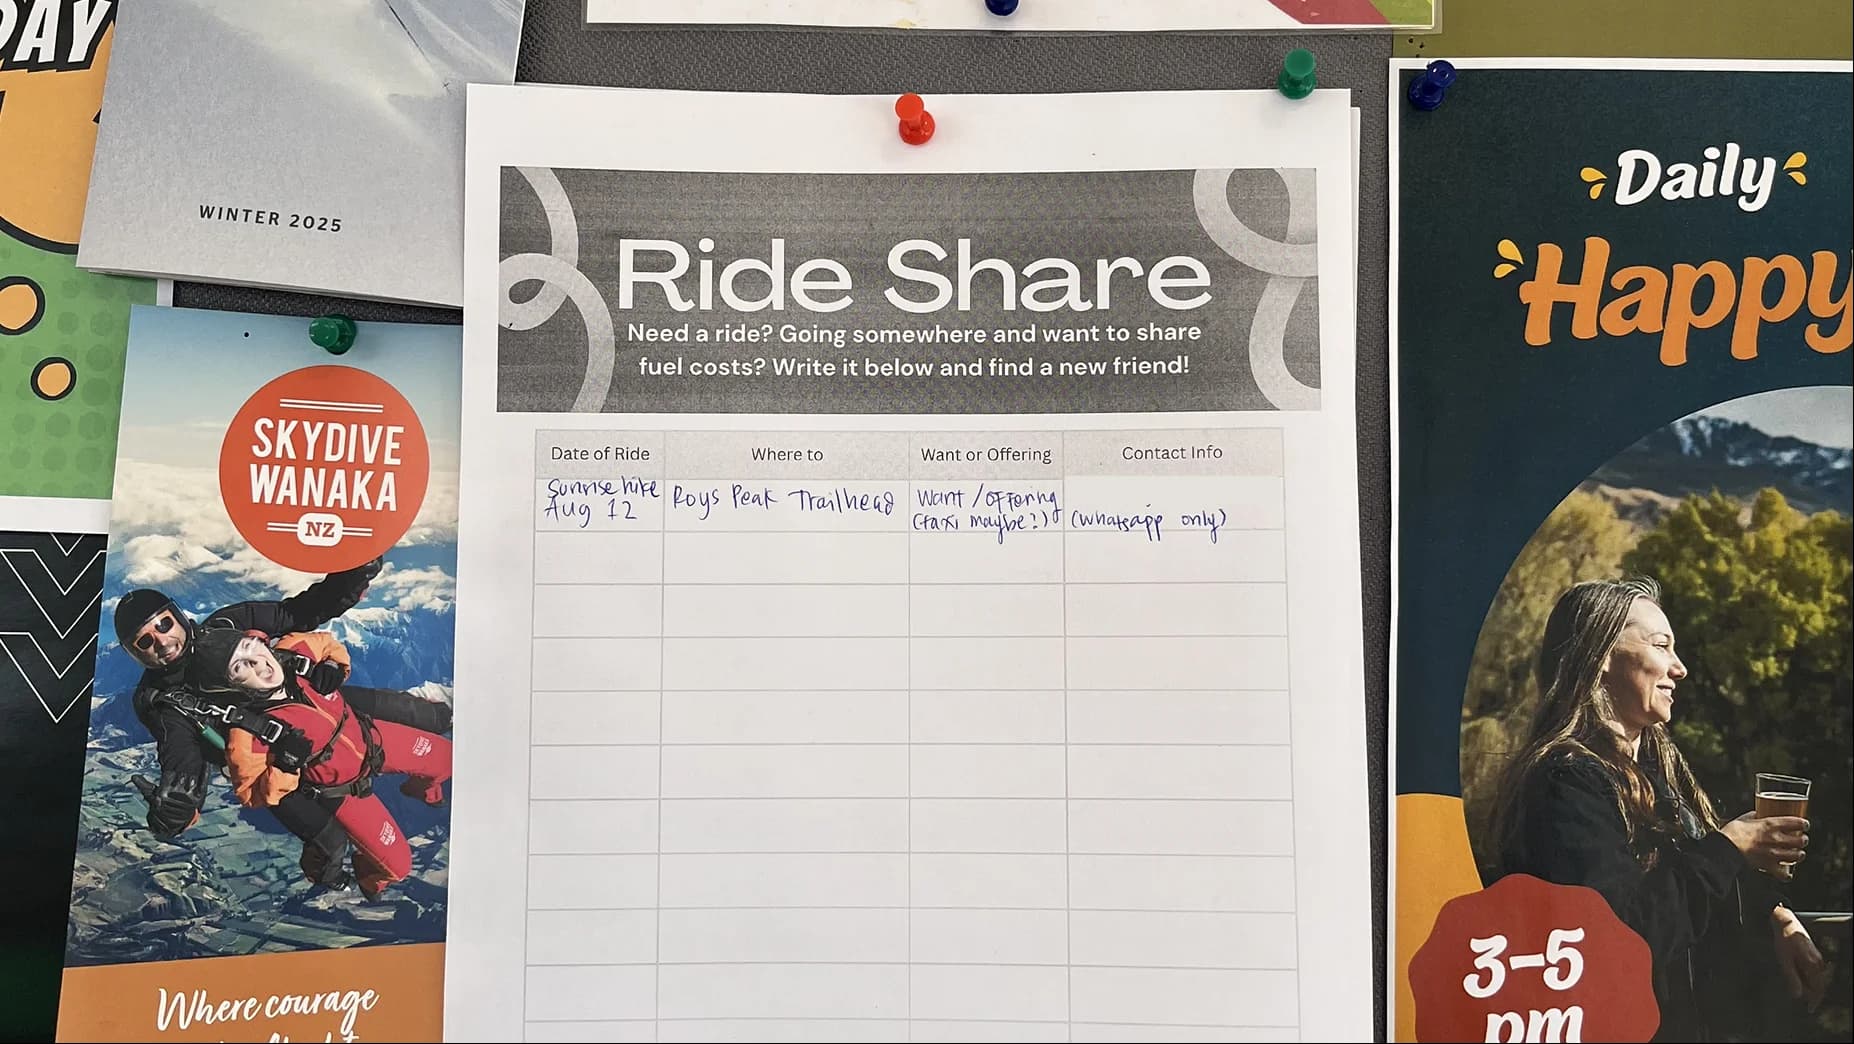 DAY
WINTER 2025
SKYDIVE
WANAKA
NZ
Where courage
Ride Share
Need a ride? Going somewhere and want to share
fuel costs? Write it below and find a new friend!
Date of Ride Where to Want or Offering Contact Info
Sunrise hike
Aug 12
Roys Peak Trailhead
Want / offering
(taxi maybe?)
(whatsapp only)
Daily
Happy
3-5
pm